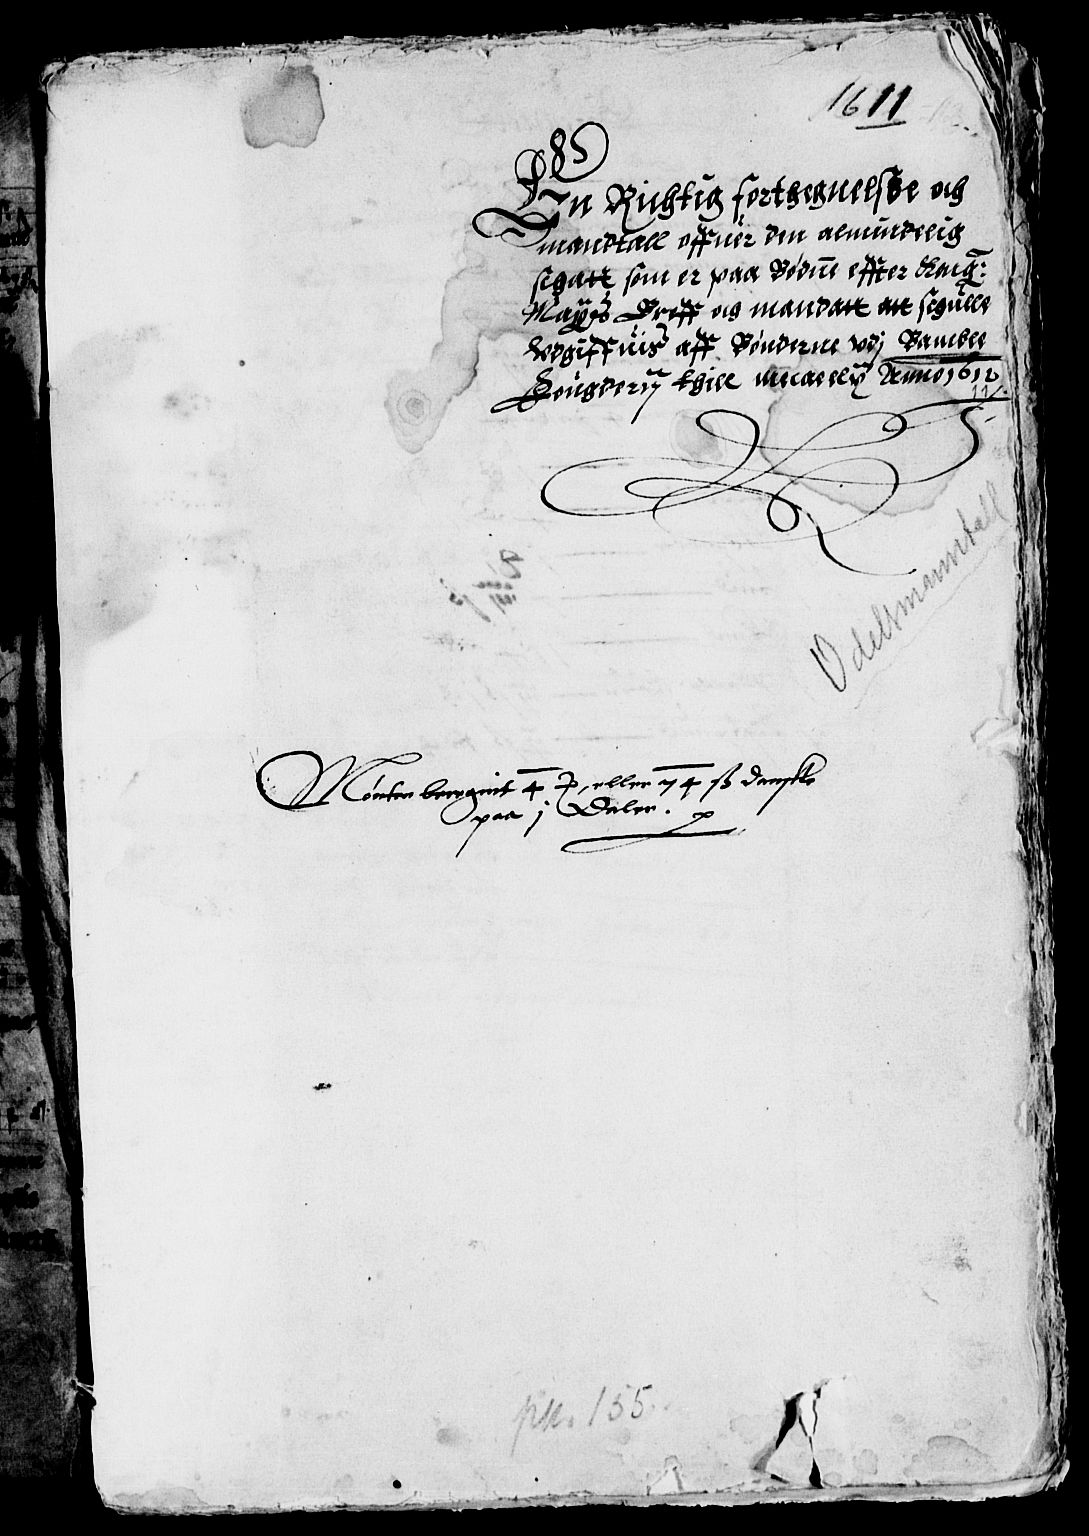 1611
En Richtig fortegnelsse och
mandtall offuer den almindelig
schatt som er paa Bødne effter Kong:
May: Breff och mandatt att schulle
vdgiffuis aff Bønderne vdj Bamble
thill Anno 1612
11
Odelsmanntall
Mønten beregnit 4 eller 74 ß danske
paa j Daler.
pk. 155